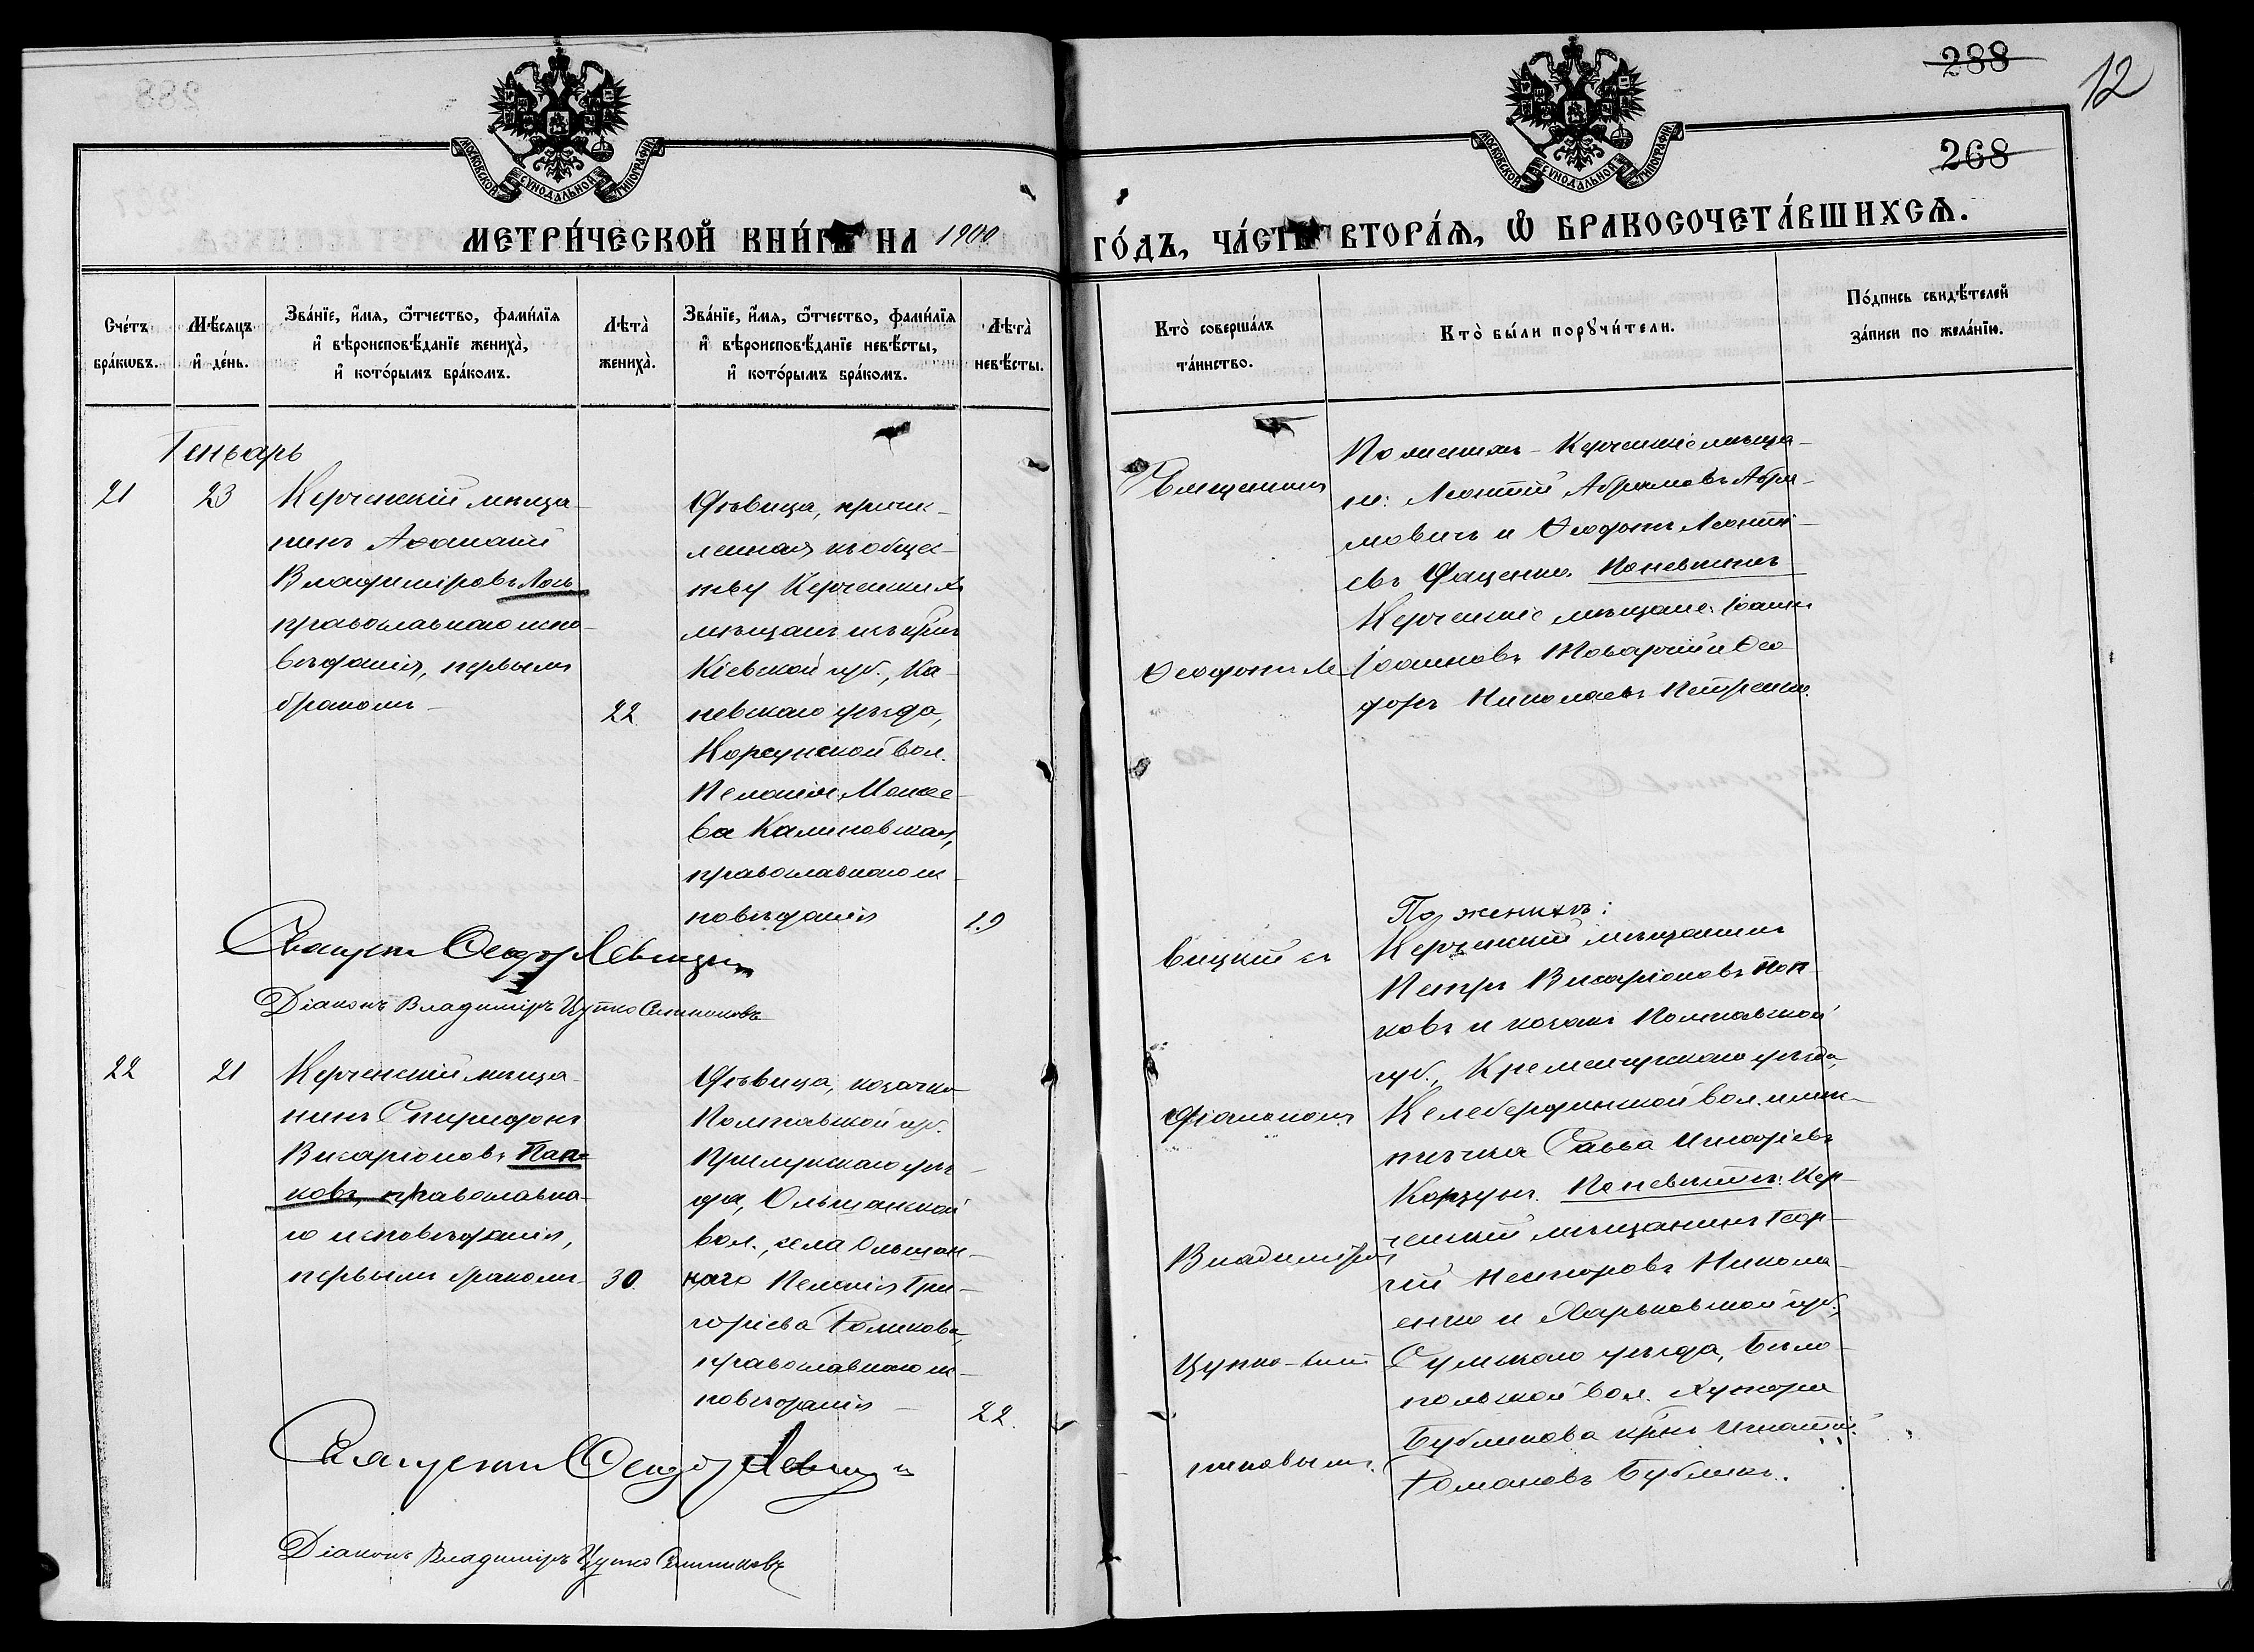 288
12
268
МОСКОВСКОЙ СѴНОДАЛЬНОЙ ТИПОГРАФІИ
МОСКОВСКОЙ СѴНОДАЛЬНОЙ ТИПОГРАФІИ
МЕТРИ́ЧЕСКОЙ КНИ́ГѢ НА 1900
ГО́ДЪ, ЧА́СТЬ ВТОРА́Ѧ, Ѽ БРАКОСОЧЕТА́ВШИХСѦ.
Сче́тъ бра́кѡвъ.
Мѣ́сѧцъ и҆ де́нь.
Зва́нїе, и҆́мѧ, ѻ҆́тчество, фами́лїѧ и҆ вѣроисповѣ́данїе жениха̀, и҆ кото́рымъ бра́комъ.
Лѣта̀ жениха̀.
Зва́нїе, и҆́мѧ, ѻ҆́тчество, фами́лїѧ и҆ вѣроисповѣ́данїе невѣ́сты, и҆ кото́рымъ бра́комъ.
Лѣта̀ невѣ́сты.
Кто̀ соверша́лъ та́инство.
Кто̀ бы́ли порꙋчи́тели.
По́дпись свидѣ́телей за́писи по жела́нїю.
Генварь
21
23
Керченскій мѣща-
нинъ Аѳанасій
Владиміровъ Лось
православнаго испо-
вѣданія, первымъ
бракомъ
22
Дѣвица, причис-
ленная къ общес-
тву Керченскихъ
мѣщанъ изъ крест.
Кіевской губ., Ка-
невскаго уѣзда,
Корсунской вол.
Пелагія Моисе-
ва Калиновская,
православнаго ис-
повѣданія
19
Священникъ
Ѳеодоромъ Ле-
По женихѣ - Керченскіе мѣща-
не: Леонтій Абрамовъ Абра-
мовичъ и Ѳеодоръ Леонті-
евъ Даценко. По невѣстѣ
Керченскіе мѣщане: Іоаннъ
Іоанновъ и Ѳео-
доръ Николаевъ Петренко.
Священникъ Ѳеодоръ Левицкій
Діаконъ Владиміръ Цупко Ситниковъ
22
21
Керченскій мѣща-
нинъ Спиридонъ
Виссаріоновъ Поп-
ковъ, православна-
го исповѣданія,
первымъ бракомъ
30
Дѣвица, козачка
Полтавской губ.
Прилукскаго уѣз-
да, Ольшанской
вол., села Ольшан-
наго Пелагія Гри-
горіева Роликова,
православнаго ис-
повѣданія
22.
вицкій съ
Діакономъ
Владиміромъ
Цупко-Сит
никовымъ.
По женихѣ:
Керченскій мѣщанинъ
Петръ Виссаріоновъ Поп
ковъ и козакъ Полтавской
губ., Кременчугскаго уѣзда,
Келебердинской вол.
Савва
Корзунъ. По невѣстѣ: Кер-
ченскій мѣщанинъ Геор-
гій Несторовъ Никола-
енко и Харьковской губ.,
Сумскаго уѣзда, Бѣло-
польской вол. хутора
Бубликова крест. Игнатій
Романовъ Бубликъ.
Священникъ Ѳеодоръ Левицкій
Діаконъ Владиміръ Цупко Ситниковъ